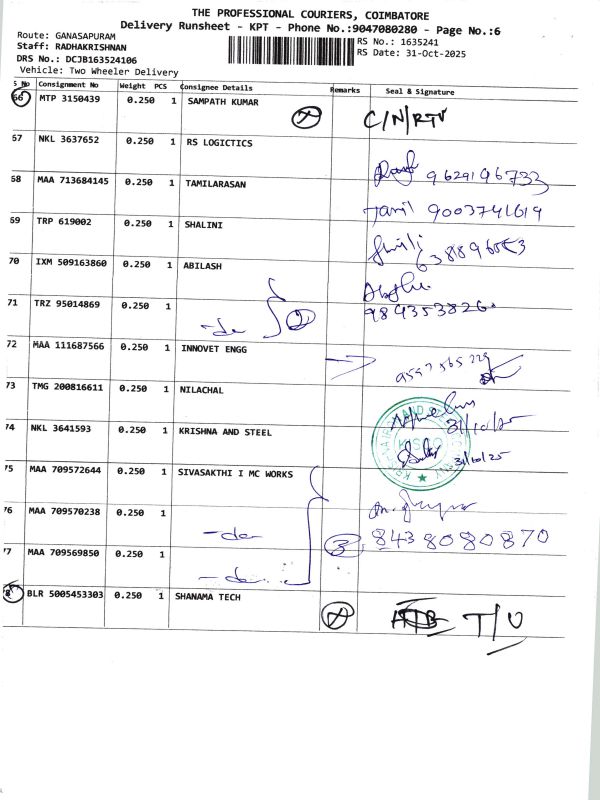 THE PROFESSIONAL COURIERS, COIMBATORE
Delivery Runsheet - KPT - Phone No.:9047080280 - Page No.:6
Route: GANASAPURAM
Staff: RADHAKRISHNAN
DRS No.: DCJB163524106
Vehicle: Two Wheeler Delivery
RS No.: 1635241
RS Date: 31-Oct-2025
S No Consignment No Weight PCS Consignee Details Remarks Seal & Signature
66 MTP 3150439 0.250 1 SAMPATH KUMAR X C/N/RTU
67 NKL 3637652 0.250 1 RS LOGICTICS
9629196733
68 MAA 713684145 0.250 1 TAMILARASAN
Tamil 9003741619
69 TRP 619002 0.250 1 SHALINI
70 IXM 509163860 0.250 1 ABILASH
71 TRZ 95014869 0.250 1 -do 2
9843538260
72 MAA 111687566 0.250 1 INNOVET ENGG
73 TMG 200816611 0.250 1 NILACHAL
31/10/25
74 NKL 3641593 0.250 1 KRISHNA AND STEEL
31/10/25
75 MAA 709572644 0.250 1 SIVASAKTHI I MC WORKS
76 MAA 709570238 0.250 1 -do 3 8438080870
77 MAA 709569850 0.250 1 -do
78 BLR 5005453303 0.250 1 SHANAMA TECH X T/U